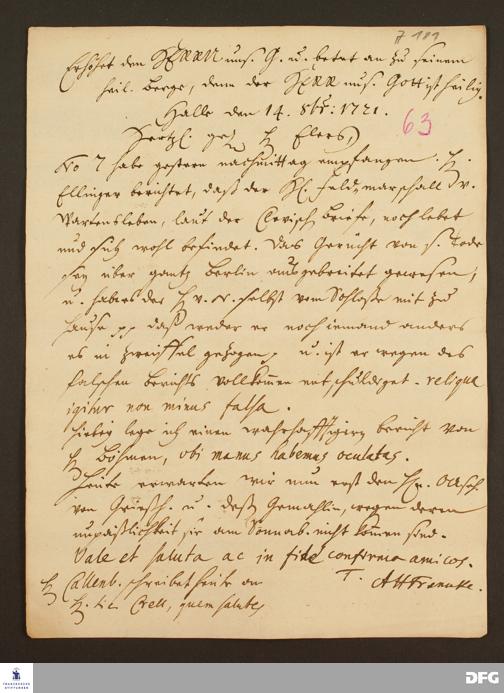 A 181
Erhöhet den HERRN uns. G. u. betet an zu seinem
heil. Berge, denn der HERR uns. Gott ist heilig.
Halle den 14. 8br: 1721.
63
Hertzl. gel. H. Elers,
No 7 habe gestern nachmittag empfangen. H.
Ellinger berichtet, daß der H. Feldmarschall v.
Wartensleben, laut der Clevisch. Briefe, noch lebet
und sich wohl befindet. Das Gerücht von s. Tode
sey über gantz Berlin ausgebreitet gewesen,
u. habe es der H. v. N. selbst vom Schlosse mit zu
Hause pp daß weder er noch iemand anders
es in zweiffel gezogen, u. ist er wegen des
falschen Berichts vollkommen entschuldiget. reliqua
igitur non minus falsa.
Hiebey lege ich einen wahrhafftigern bericht von
H. Böhmen, ubi manus habemus oculatas.
Heute erwarten wir nun erst den H.
von u. deßen Gemahlin, wegen deren
unpäßlichkeit sie am Sonnab. nicht kommen sind.
Vale et saluta ac in fide confirma amicos.
T. AHFrancke.
H. Callenb. schreibet heute an
H. Lic. Crell, quem salutes
FRANCKESCHE STIFTUNGEN
DFG